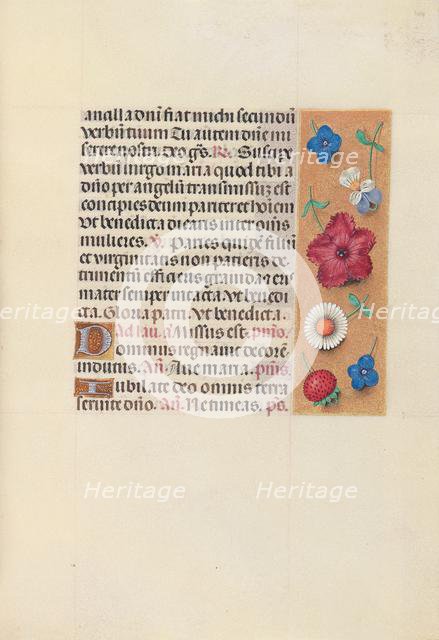 ancilla dñi fiat michi secundũ
verbũ tuum Tu autem dñe mi
serere nostri. Deo grs. Rx. Suscipe
verbũ virgo maria quod tibi a
dño per angelũ transmissuz est
concipies deum paries et hoiem
Ut benedicta dicaris inter oms
mulieres. V. Paries quidẽ filiũ
et virginitatis non patieris de
trimentũ efficieris grauida et eris
mater semper intacta Ut benedi
cta. Gloria patri Ut benedicta.
Ad lau. añ Missus est. psm̃o.
Dominus regnauit decorẽ
indutus. Añ. Aue maria. psmus.
Iubilate deo omnis terra
seruite dño. Añ. Ne timeas. ps.
Heritage Heritage Heritage
Heritage Heritage Heritage
Heritage Heritage